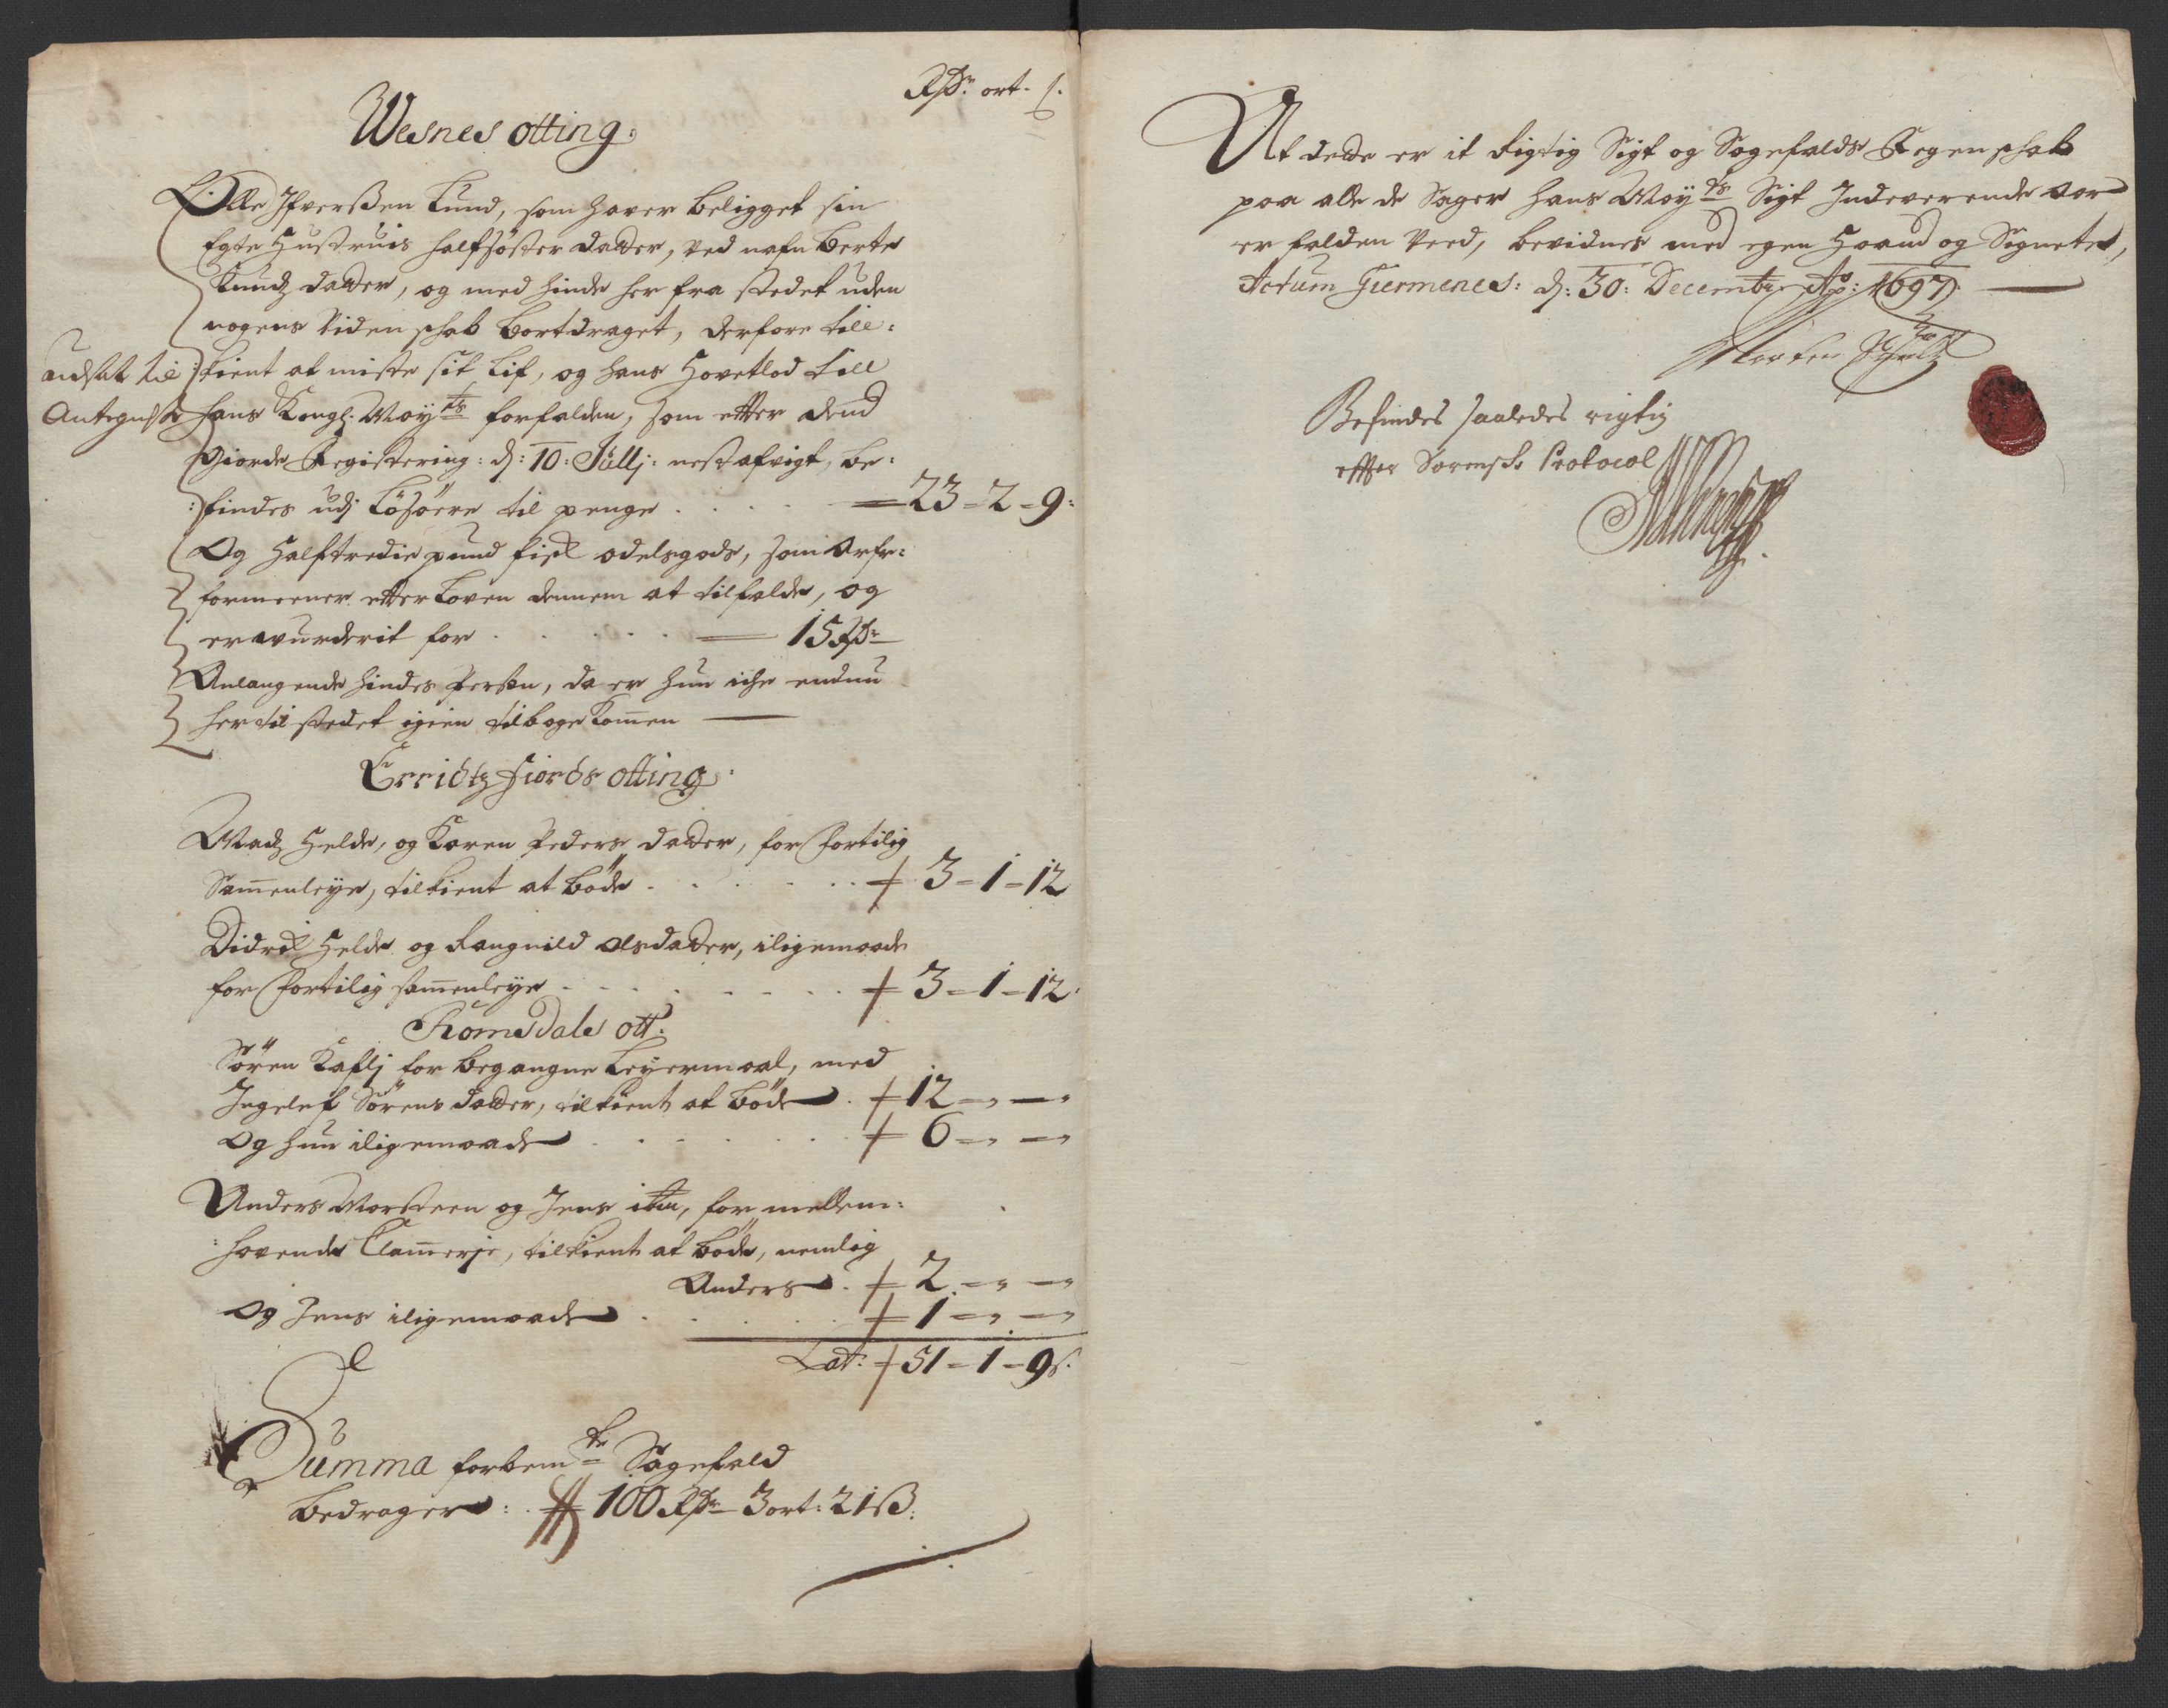 Rdr. ort. s.
Wesnes otting:
Olle Ifverßen Lund, som haver beligget sin
Egte Hustruis halfsöster datter, ved nafn Berte
Knudz datter, og med hinde her fra stedet uden
nogens Videnskab bortdraget, derfore till:
kient at miste sit Lif, og hans Hovetlod till
hans Kongl: Mayts forfalden, som etter dend
giorde Registering: d: 10: Jullj: nest afvigt, be:
findes udj Löhsöere til penge . . . = 23 - 2 - 9:
Og Halftredie pund fisk odelsgods, som Arfv:
formeener etter Loven dennem at tilfalde, og
er wurderit for . . . . . 15 Rdr
Anlangende hindes Person, da er hun iche endnu
her til stedet igien tilbage kommen
udsat til
Antegnelse
Erridtz fiords otting:
Madz Helde, og Karen Peders datter, for fortilig
Sammenleye, tilkient at böde . . . 3 - 1 - 12
Didrik Helde og Rangnild Olsdatter, iligemaade
for fortilig sammenleye . . . 3 - 1 - 12
Romsdals ott:
Sören Kaflj for begangne Leyermaal, med
Ingelef Sörens datter, tilkient at böde . 12 - „ - „
Og hun iligemaade . . . 6 - „ - „
Anders Morsteen og Jens item, for mellem:
havende Klammerje, tilkient at böde, nemlig
Anders . 2 - „ - „
Og Jens iligemaade . . . 1 - „ - „
Lat: 51 - 1 - 9 s.
Summa forbemte Sagefald
bedrager: . 100 Rdr 3 ort: 21 ß:
At dette er it Rigtig Sigt og Sagefalds Regenskab
paa alle de Sager hans Mayts Sigt Indeverende Aar
er falden Veed, bevidnes med egen Haand og Signeter,
Actum Giermenes: d: 30: Decembr Ao: 1697
Morten
Befindes saaledes rigtig
effter Sorensch. Protocol